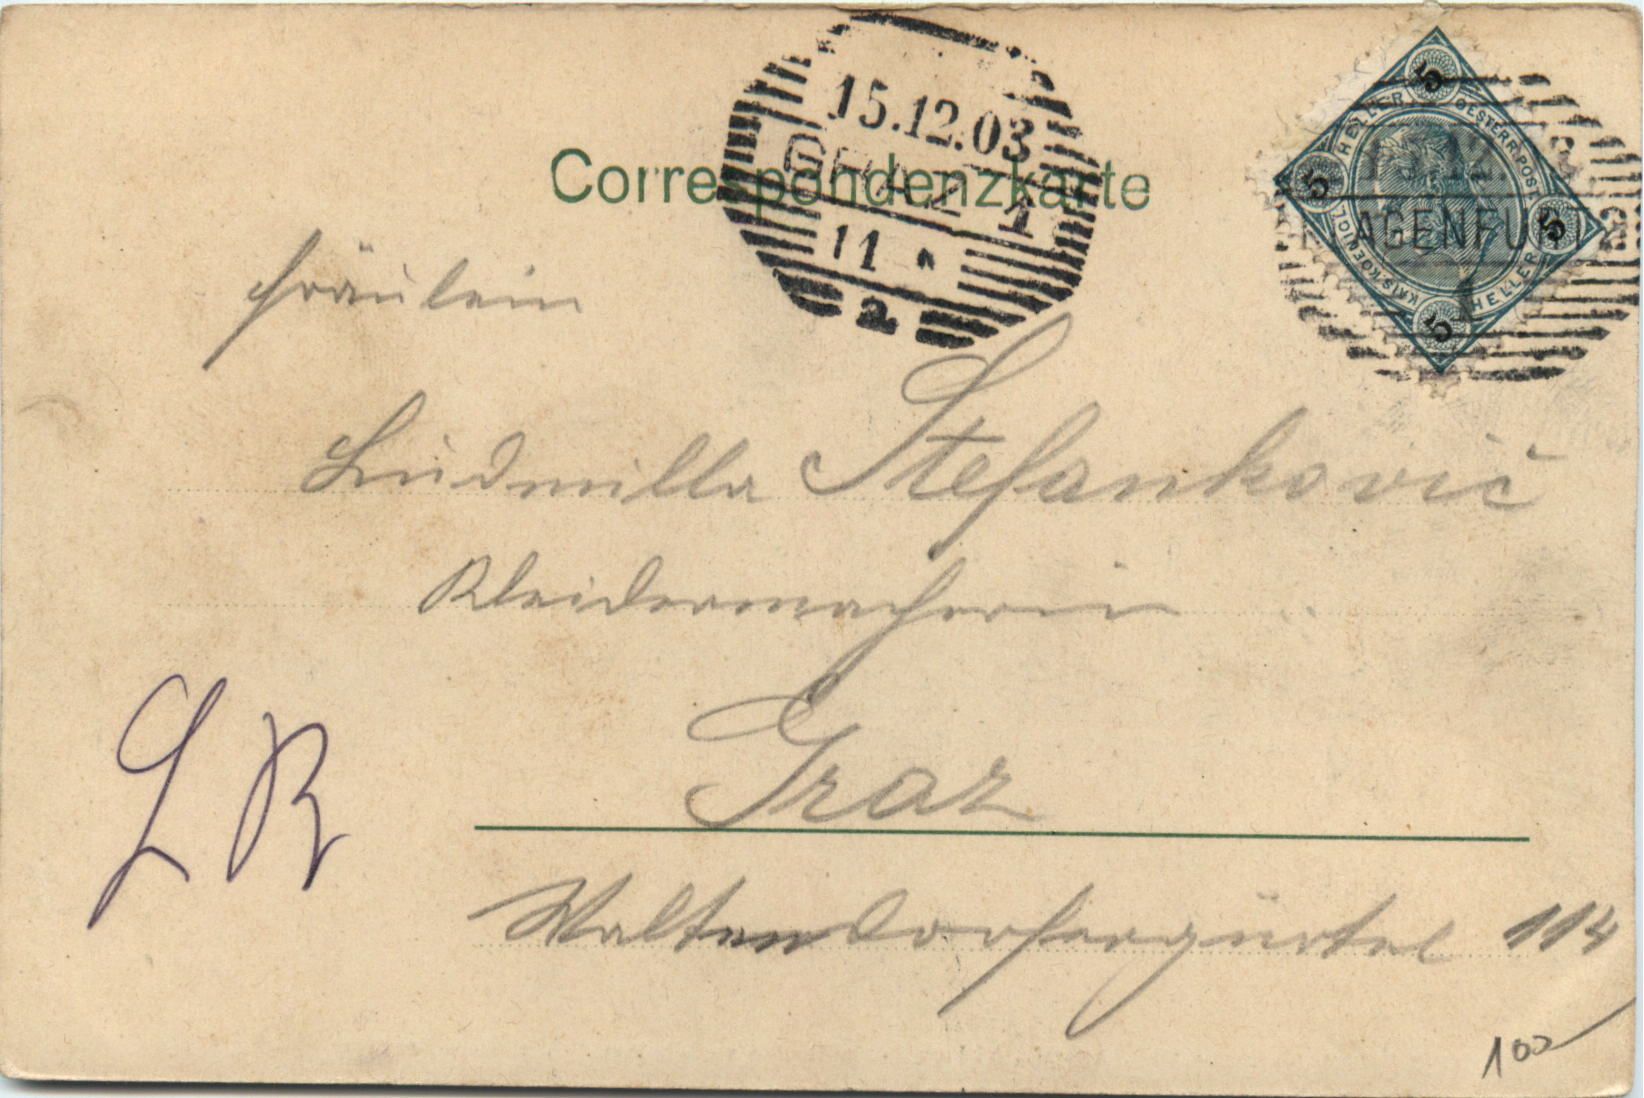 15.12.03
GRAZ 1
11
2
5 HELLER 5 OESTERR. POST 5 HELLER 5 KAIS. KOENIGL.
KLAGENFURT 2
1
Correspondenzkarte
Fräulein
Ludmilla Stefankovič
Kleidermacherin
Graz
Waltendorfergürtel 114
LR
100